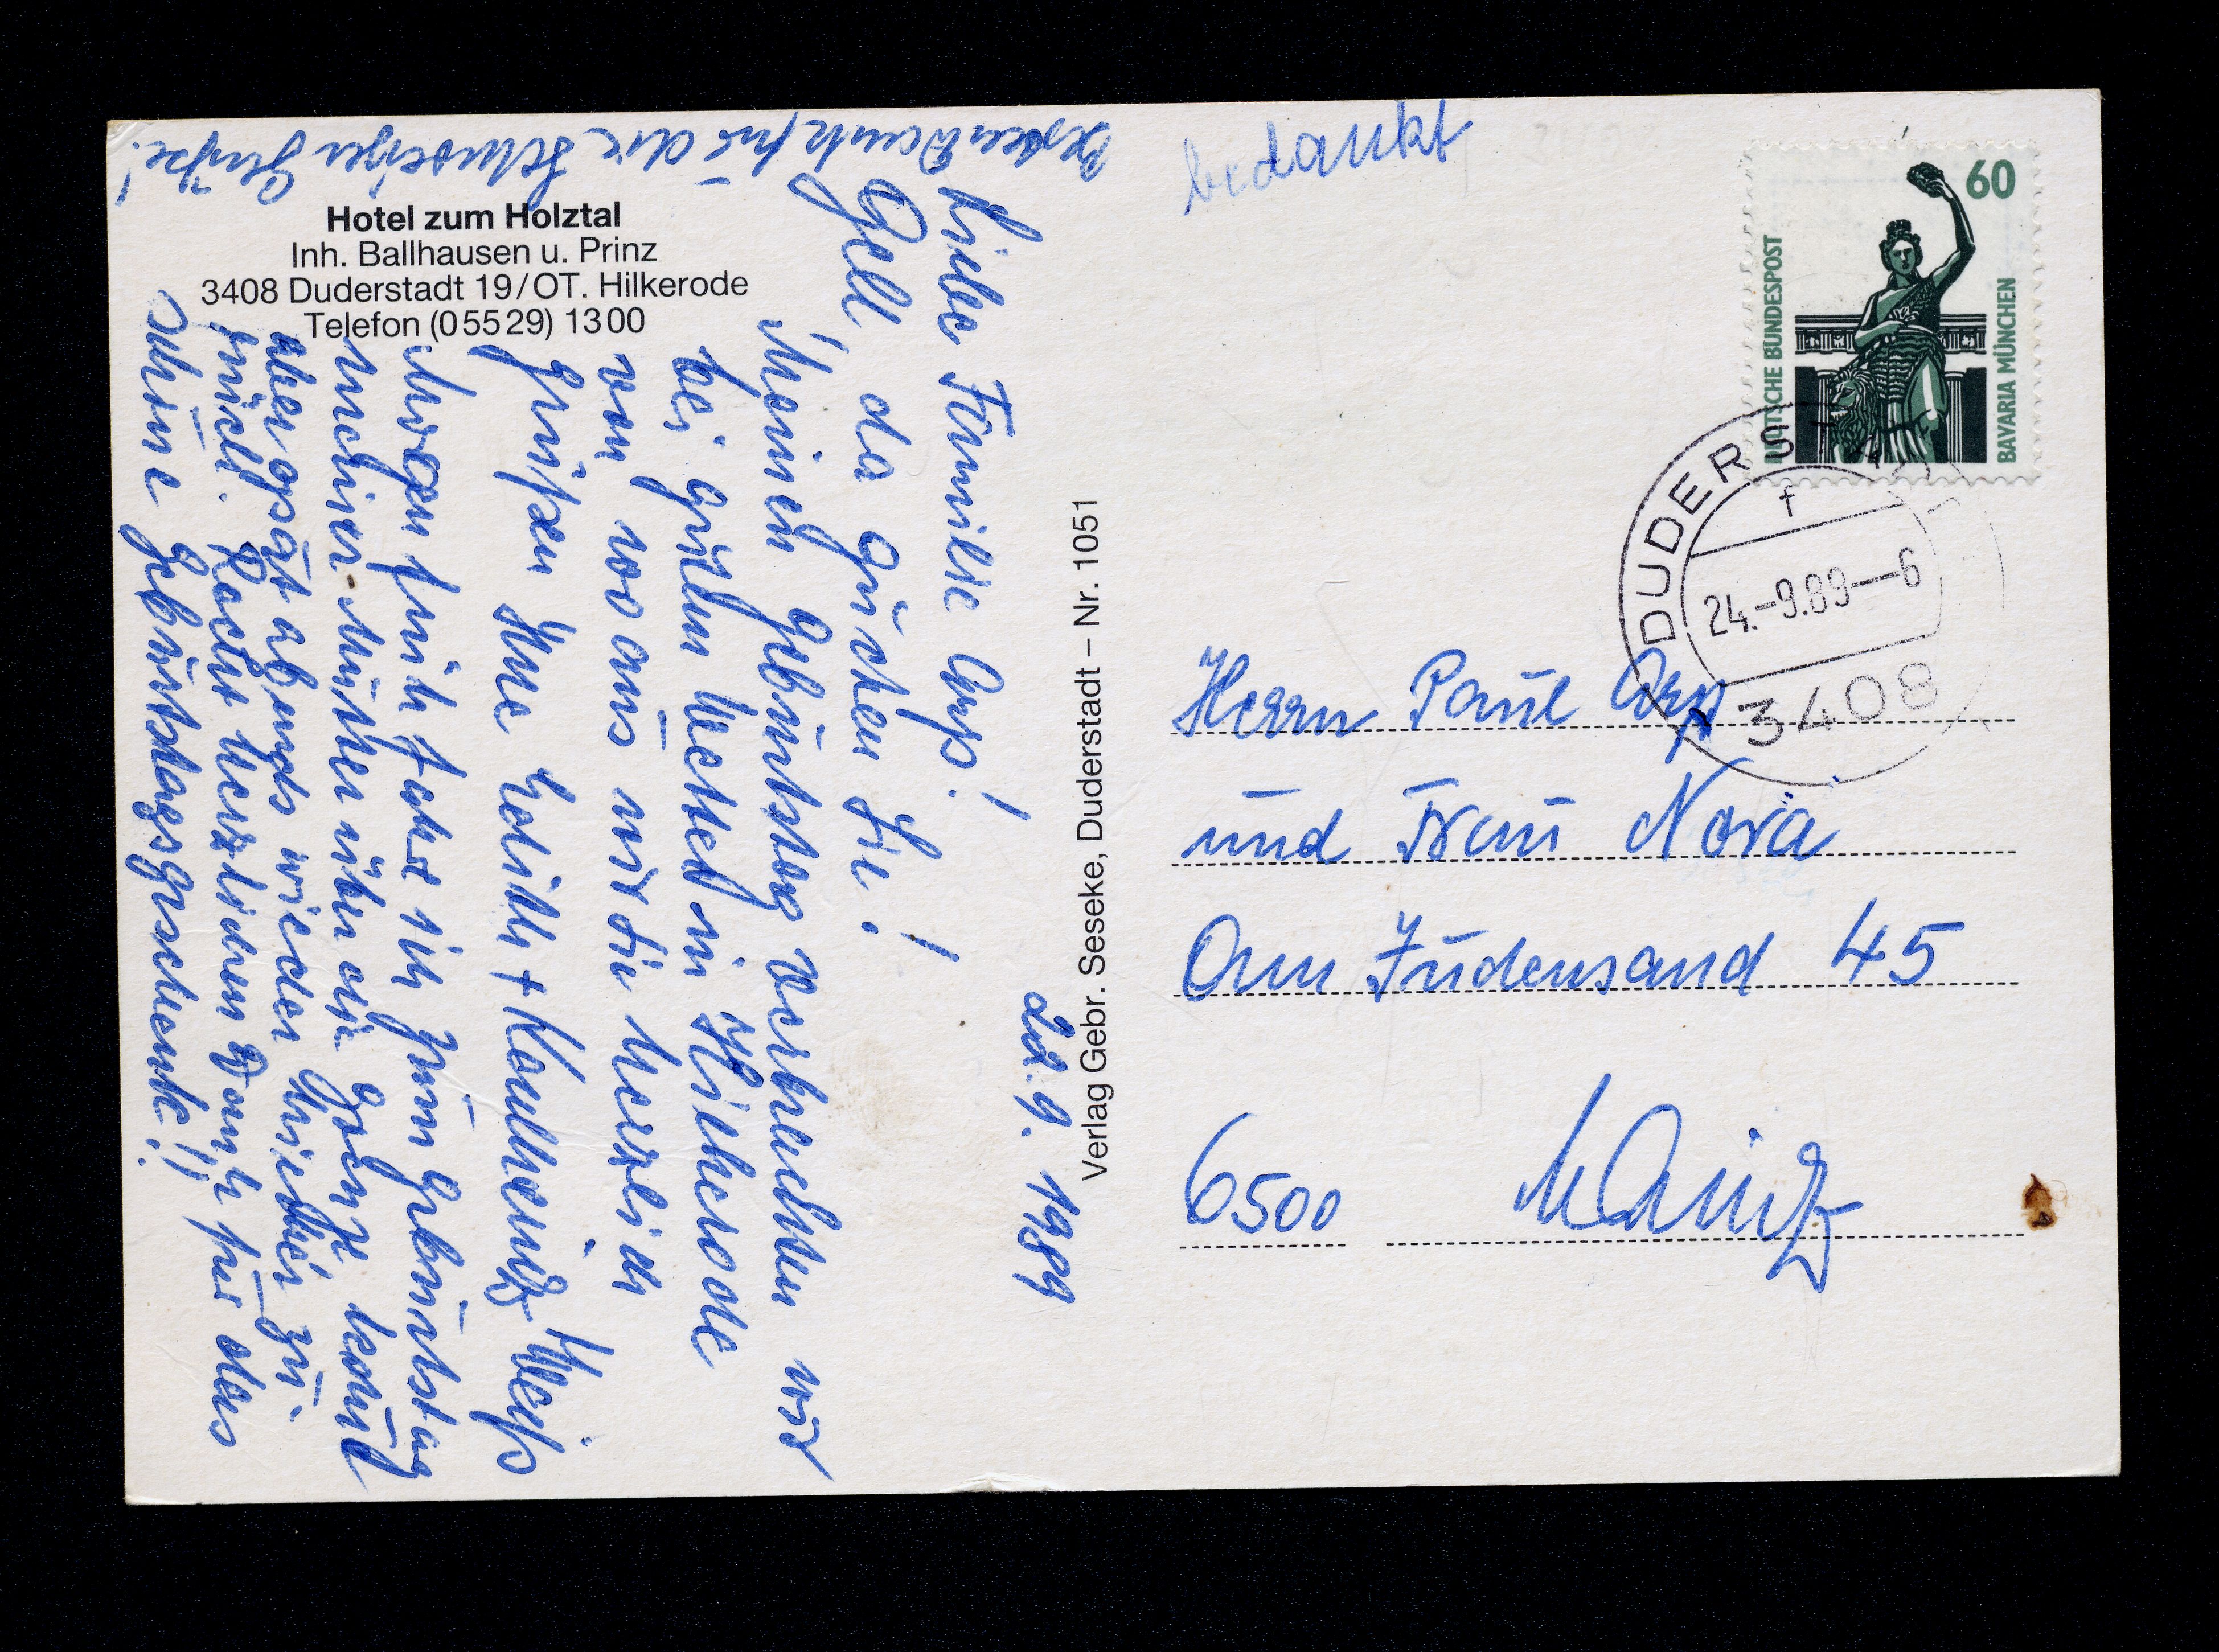 Hotel zum Holztal
Inh. Ballhausen u. Prinz
3408 Duderstadt 19/OT. Hilkerode
Telefon (05529) 1300
1989
Liebe Familie Arp!
Gell, da gucken Sie!
Meinen Geburtstag verbrachten wir
bei gutem Wetter in Hilkerode
von wo aus wir Sie herzlich
grüßen Ihre Edith + Karlheinz Weiß
Morgen früh fahre ich zum Geburtstag
meiner Mutter über die Grenze komme
aber spät abends wieder hierher zu
rück. Recht herzlichen Dank für das
schöne Geburtstagsgeschenk!
Besten Dank für die Schweizer Grüße!
Verlag Gebr. Seseke, Duderstadt – Nr. 1051
bedankt
60
DEUTSCHE BUNDESPOST
BAVARIA MÜNCHEN
DUDERST
f
24.-9.89--6
3408
Herrn Paul Arp
und Frau Nora
Am Judensand 45
6500 Mainz